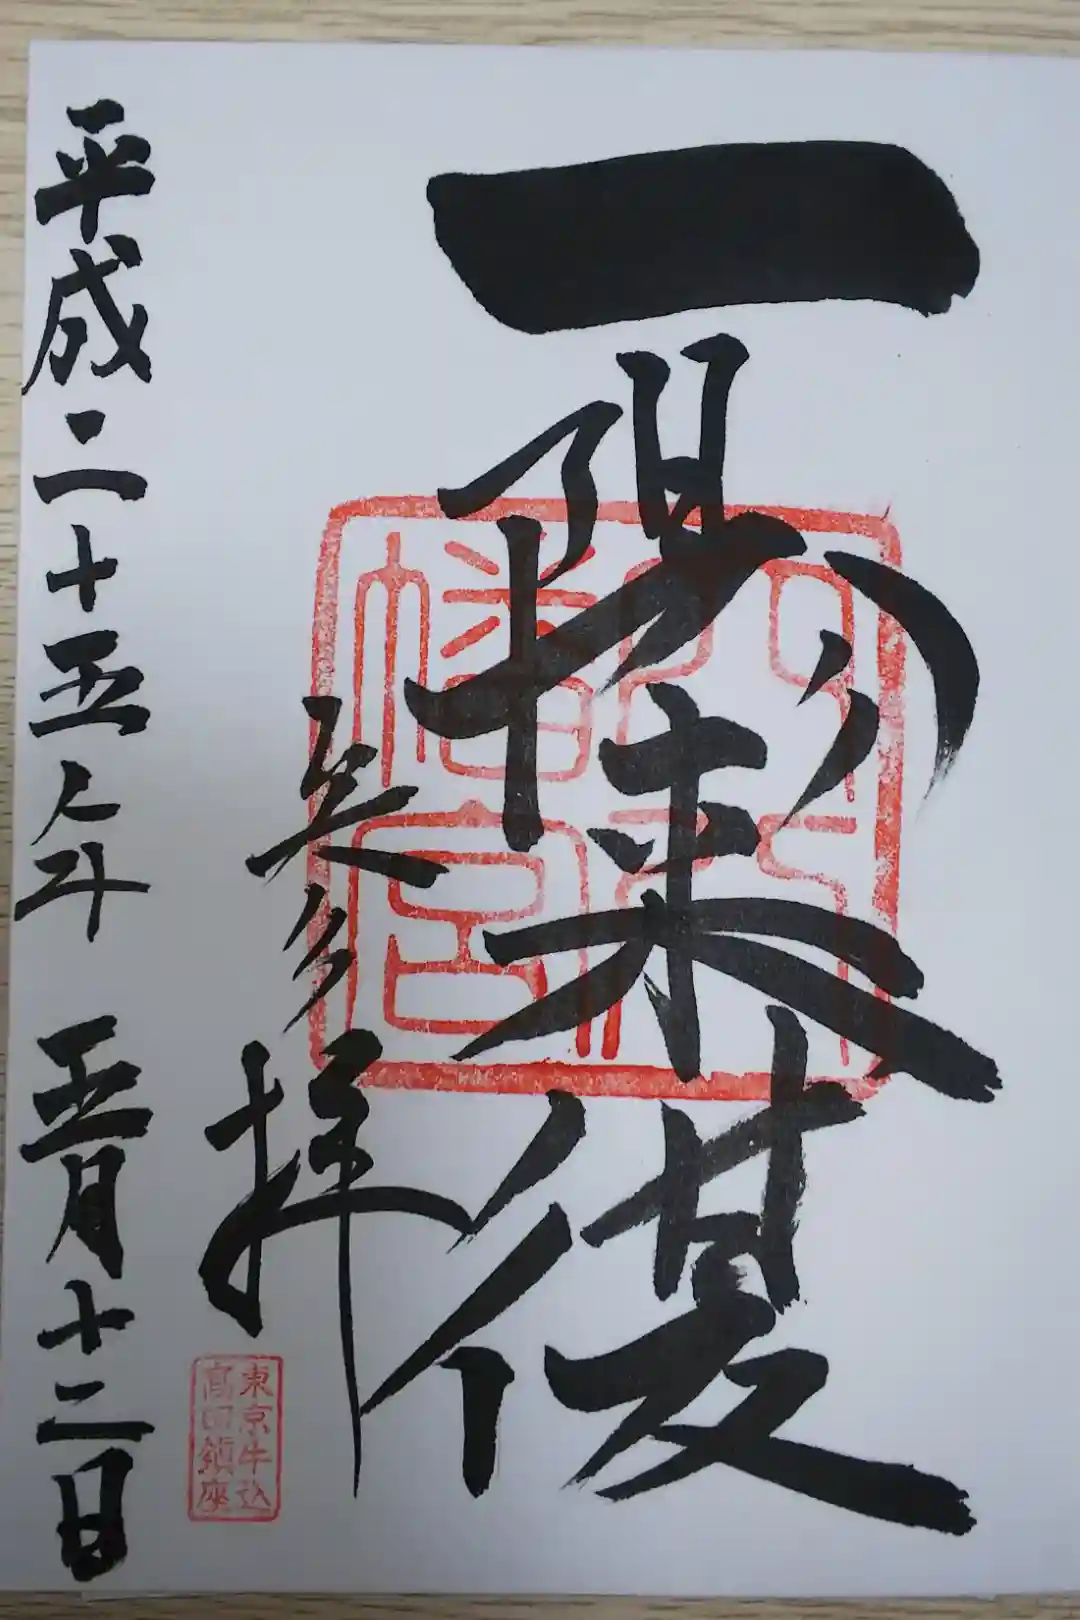 一陽来復
穴八幡宮
参拝
東京牛込
高田鎮座
平成二十五年 五月十二日